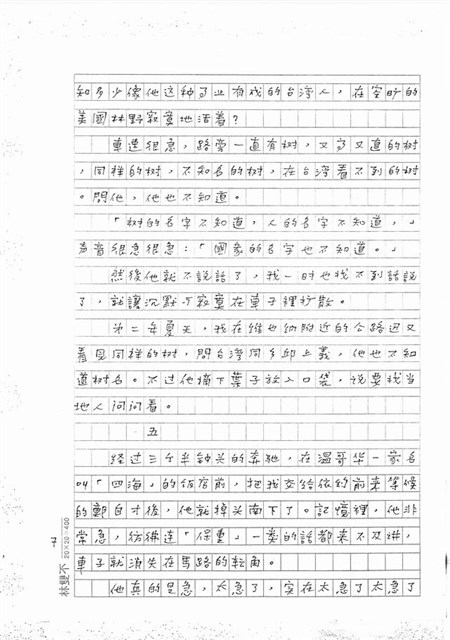 知多少像他这种了业有成的台湾人，在空旷的
美國林野寂寞地活着？
車速很急，路旁一直有树，又高又直的树
，同样的树，不知名的树，在台湾看不到的树
。問他，他也不知道。
「树的名字不知道，人的名字不知道，」
声音很急很急：「國家的名字也不知道。」
然後他就不説話了，我一时也找不到話説
了，就讓沉默与寂寞在車子裡扩散。
第二年夏天，我在維也纳附近的公路边又
看見同样的树，問台湾同乡邱上義，他也不知
道树名。不过他摘下葉子放入口袋，説要找当
地人问问看。
五
经过三个半钟头的奔驰，在温哥华一家名
叫「四海」的饭店前，把我交给依约前来等候
的鄭自才後，他就掉头南下了。記憶裡，他非
常急，彷彿連「保重」一类的話都来不及讲，
車子就消失在馬路的転角。
他真的是急，太急了，实在太急了太急了
林雙不
20×20=400